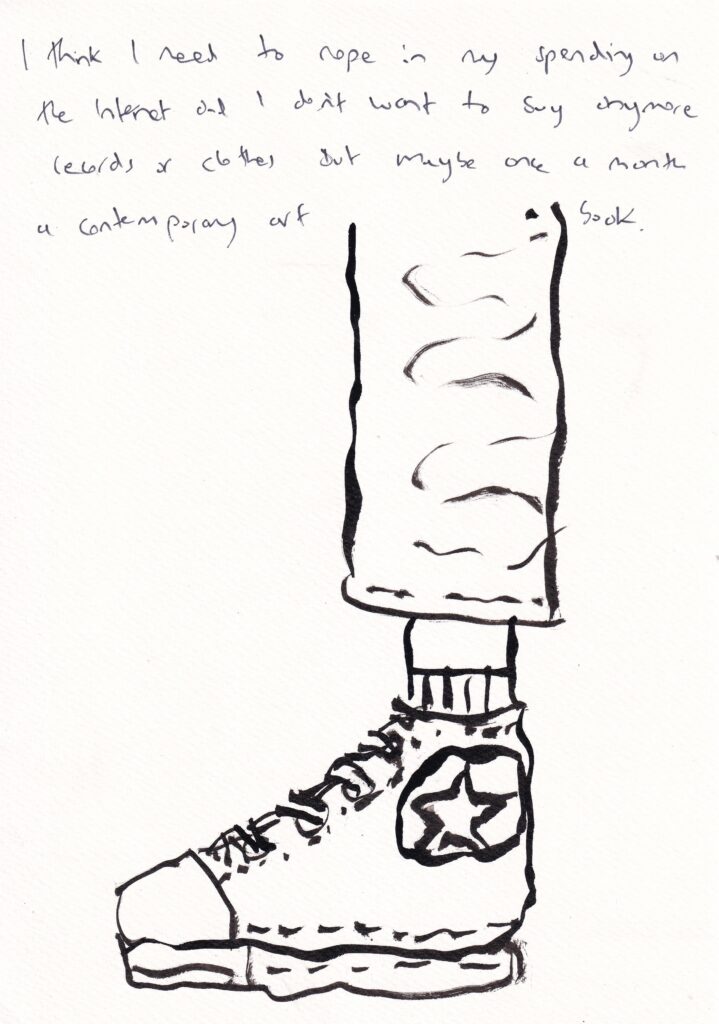 I think I need to rope in my spending on
the Internet and I don't want to buy anymore
records or clothes but maybe one a month
a contemporary art book.